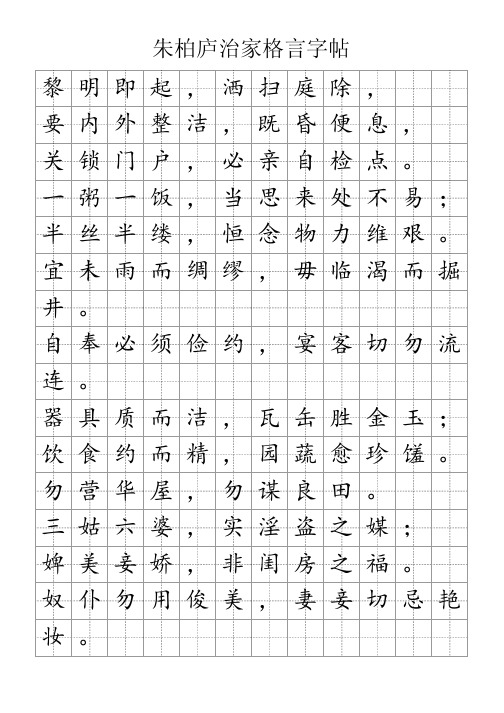 朱柏庐治家格言字帖
黎明即起，洒扫庭除，
要内外整洁，既昏便息，
关锁门户，必亲自检点。
一粥一饭，当思来处不易；
半丝半缕，恒念物力维艰。
宜未雨而绸缪，毋临渴而掘
井。
自奉必须俭约，宴客切勿流
连。
器具质而洁，瓦缶胜金玉；
饮食约而精，园蔬愈珍馐。
勿营华屋，勿谋良田。
三姑六婆，实淫盗之媒；
婢美妾娇，非闺房之福。
奴仆勿用俊美，妻妾切忌艳
妆。